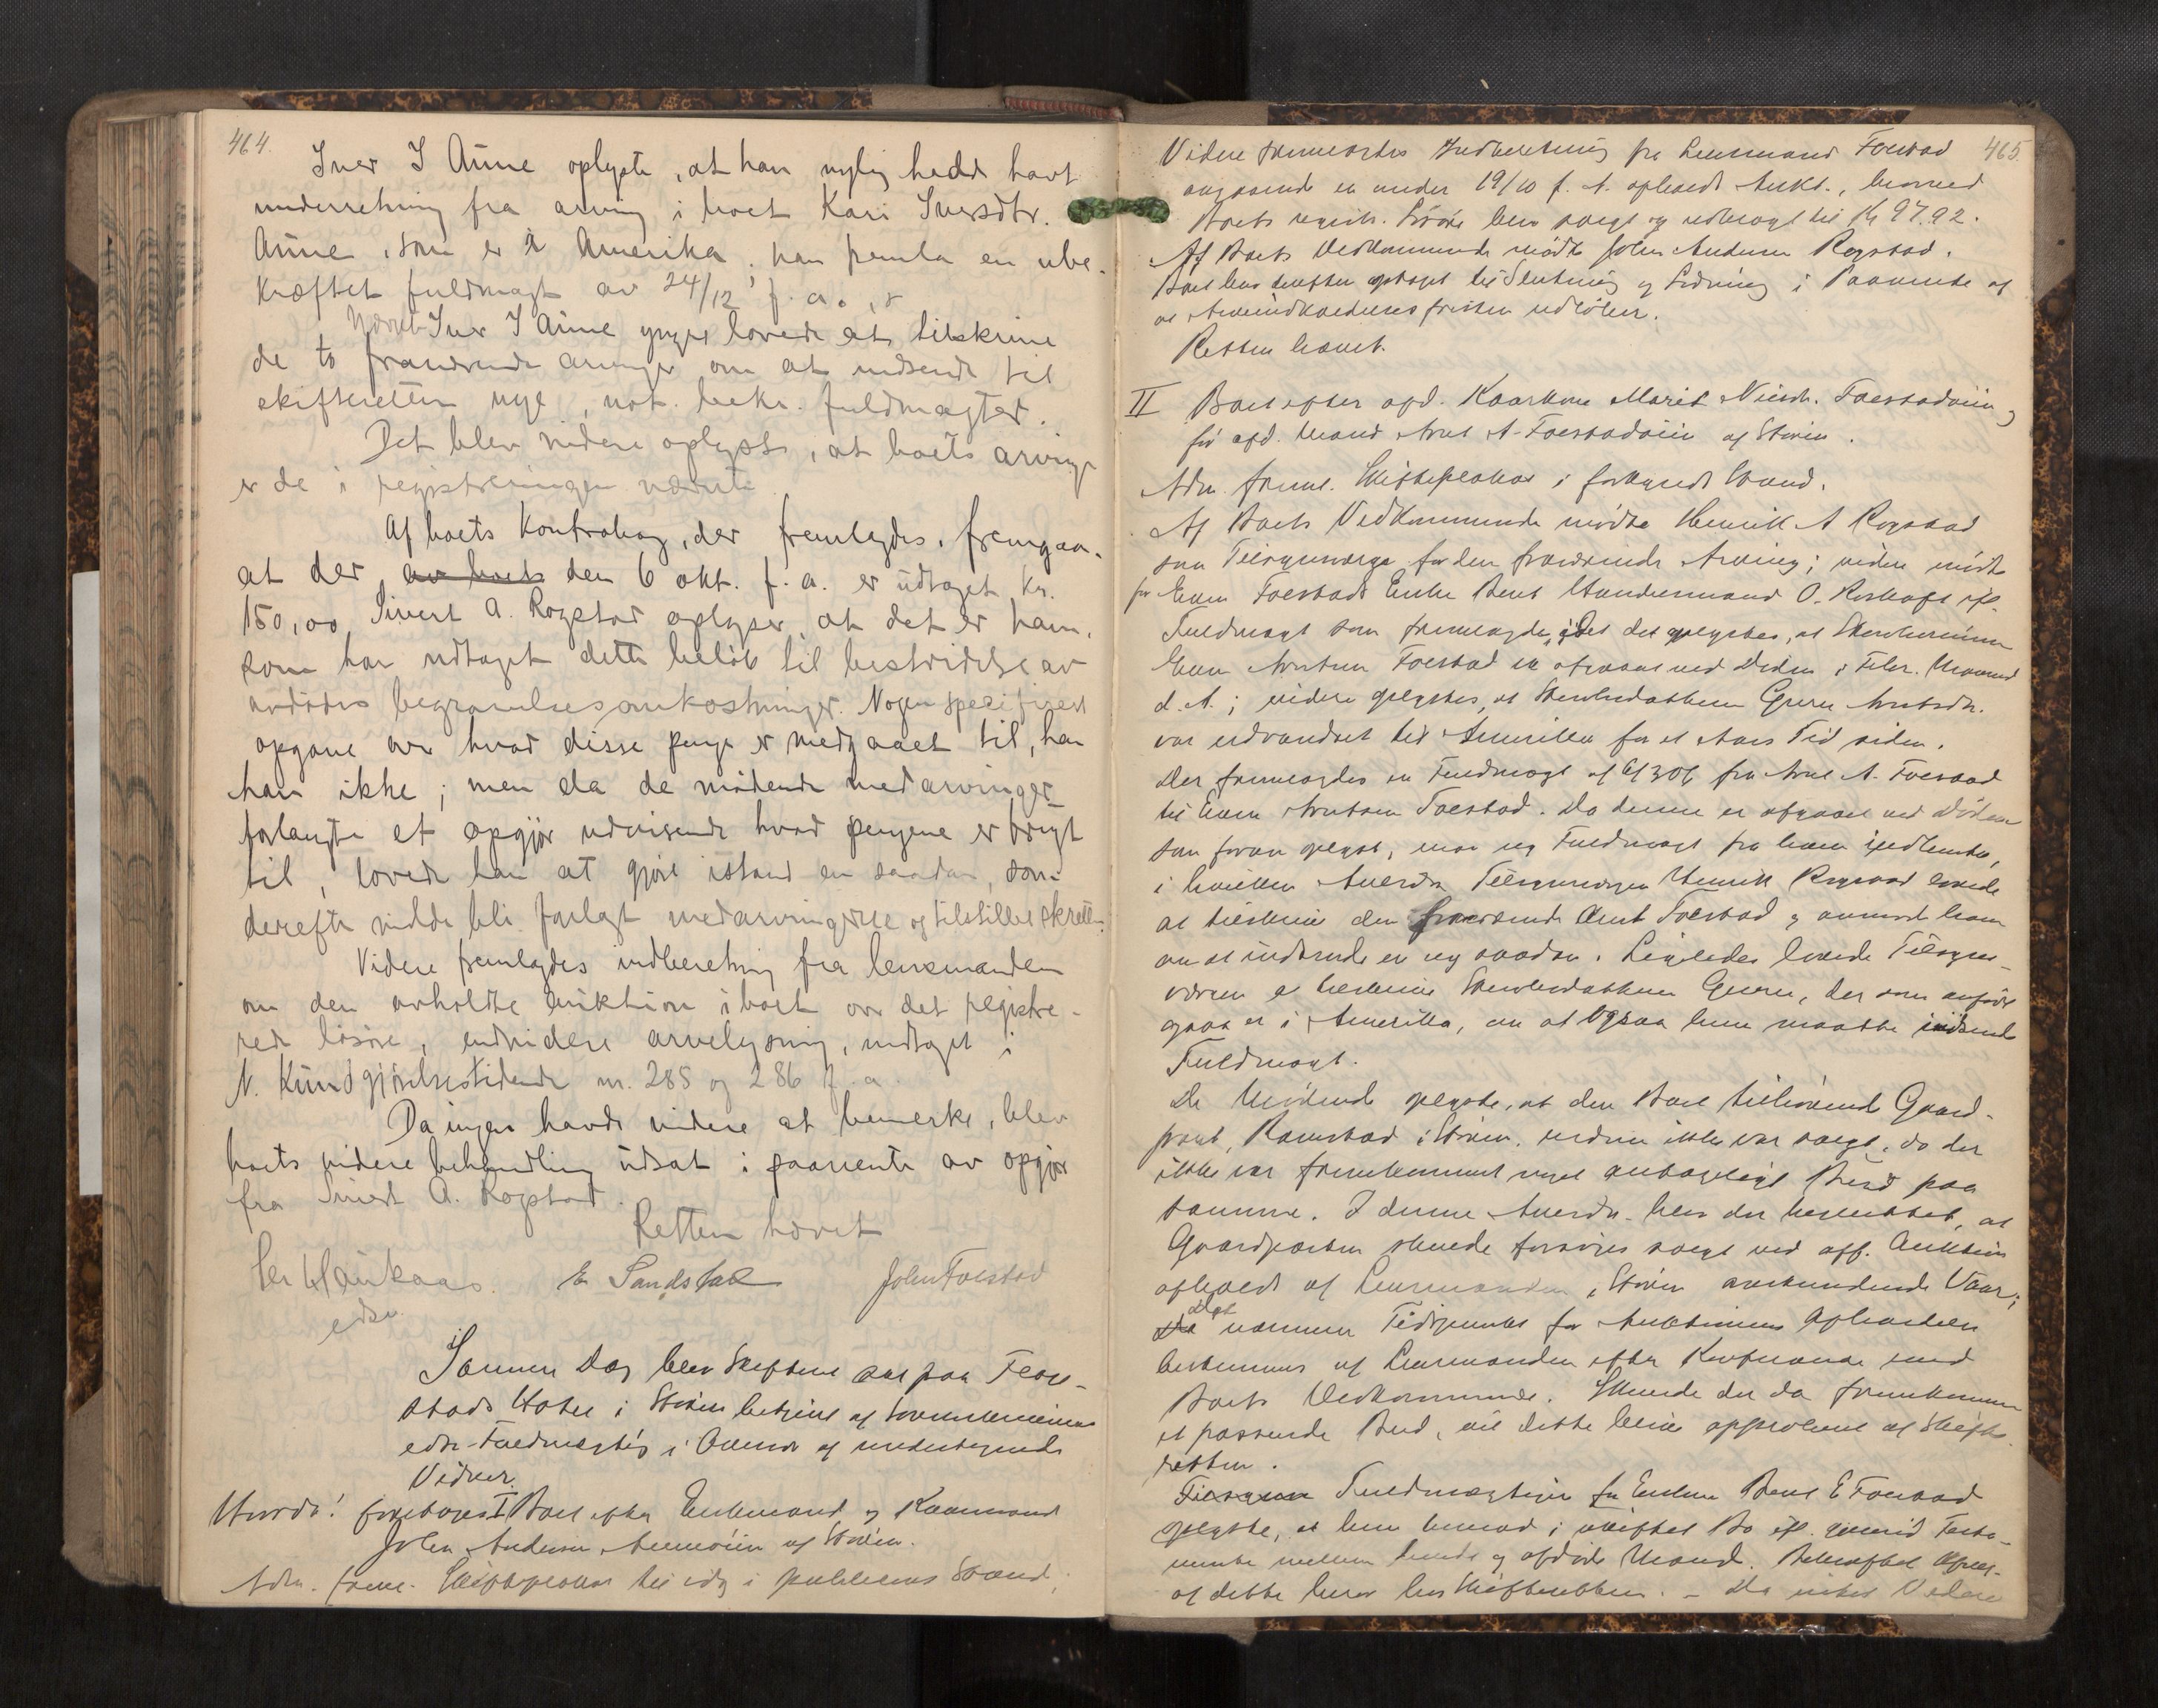 464.
Iver I Aune oplyste, at han nylig hadde havt
underretning fra arving i boet Kari Iversdtr.
Aune, som er i Amerika. han fremla en ube-
kræftet fuldmagt av 24/12 f. a.
Iver I Aune yngre lovede at tilskrive
de to fraværende arvinger om at indsende til
skifteretten nye, not. bekr. fuldmagter.
Det blev videre oplyst, at boets arvinger
er de i registreringen nævnte.
Af boets Kontrabog, der fremlagdes, fremgaar
at der av boets den 6 okt. f. a. er udtaget kr.
150,00, Sivert A. Rogstad oplyser at det er ham,
som har udtaget dette beløb til bestridelse av
avdødes begravelsesomkostninger. Nogen specificert
opgave over hvad disse penge er medgaaet til, har
han ikke; men da de mødende medarvinger
forlangte et opgjør udvisende hvad pengene er brugt
til, lovede han at gjøre istand en saadan, som
derefter vilde bli forlagt medarvingerne og tilstillet skretten.
Videre fremlagdes indberetning fra lensmanden
om den avholdte auktion i boet over det registre-
rede løsøre, endvidere arvelysning, indtaget i
N. Kundgjørelsestidende nr. 285 og 286 f. a.
Da ingen havde videre at bemerke, blev
boets videre behandling udsat i paavente av opgjør
fra Sivert A. Rogstad.
Retten hævet
E Sandstad John Folstad
edsv.
Samme Dag blev Skifteret sat paa
stads Hotel i Støren betjent af Sorenskriverens
edsv. Fuldmægtig i Overvær af undertegnede
Vidner.
Hvorda! foretoges I Boet efter Enkemand og Kaarmand
John Andersen Aunøien af Støren.
Adm. freml. Skifteproklama til idag i publiceret Stand;
465.
Videre fremlagdes Indberetning fra Lensmand Folstad
angaaende en under 19/10 f. A. afholdt Aukt., hvorved
Boets registr. Løsøre blev solgt og udbragt til Kr 97.92.
Af Boets Vedkommende mødte John Andersen Rogstad.
Boet blev derefter optaget til Slutning og Ledning i Paavente af
at Anmeldelsesfristen udløber.
Retten hævet.
II Boet efter afd. Kaarkone Marit Nilsdr. Folstadøien og
før afd. Mand Arnt A. Folstadøien af Støren.
Adm. freml. Skifteproklama i forkyndt Stand.
Af Boets Vedkommende mødte Henrik A Rogstad
som Tilsynsværge for den fraværende Arving; videre mødte
for Even Folstads Enke Beret Handelsmand O. ifl.
Fuldmagt som fremlagdes, idet det oplystes, at Stervbosønnen
Even Arntsen Folstad er afgaaet ved Døden i Febr. Maaned
d. A.; videre oplystes, at Stervbodatteren Guru Arntsdr.
var udvandret til Amerika for et Aars Tid siden.
Der fremlagdes en Fuldmagt af fra Arnt A. Folstad
til Even Arntsen Folstad. Da denne er afgaaet ved Døden
som foran oplyst, maa ny Fuldmagt fra ham indhentes,
i hvilken Anledn. Tilsynsværgen Henrik Rogstad lovede
at tilskrive den fraværende Arnt Folstad og anmode ham
om at indsende en ny saadan. Ligeledes lovede Tilsyns-
værgen at tilskrive Stervbodatteren Guru, der som anført
ogsaa er i Amerika, om at ogsaa hun maatte indsende
Fuldmagt.
De Mødende oplyste, at den Boet tilhørende Gaard-
part, Ramstad i Støren, endnu ikke var solgt, da der
ikke var fremkommet noget antageligt Bud paa
samme. I denne Anledn. blev der besluttet, at
Gaardparten skulde forsøges solgt ved off. Auktion
afholdt af Lensmanden i Støren anstundende Vaar;
Det nærmere Tidspunkt for Auktionens Afholdelse
bestemmes af Lensmanden efter Konferance med
Boets Vedkommende. Skulde der da fremkomme
et passende Bud, vil dette blive approberet af Skifte-
retten.
Tilsyns Fuldmægtigen for Enken Beret E Folstad
oplyste, at hun hensad i uskiftet Bo ifl. gjensid. Testa-
mente mellem hende og afdøde Mand. Bekræftet Afskr.
af dette beror hos Skifteretten. – Da intet Videre